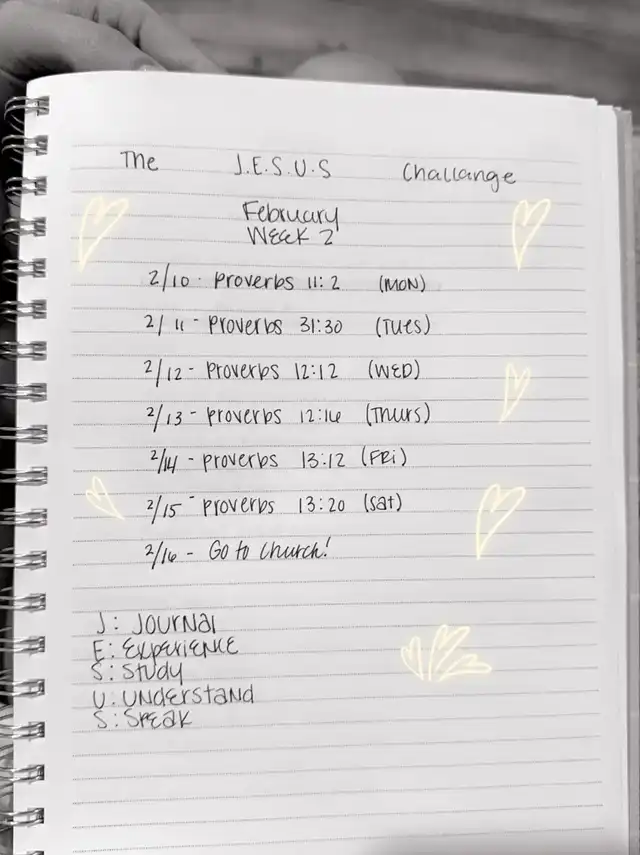 The J.E.S.U.S Challange
February
Week 2
2/10 - Proverbs 11:2 (MON)
2/11 - Proverbs 31:30 (TUES)
2/12 - Proverbs 12:12 (WED)
2/13 - Proverbs 12:16 (THURS)
2/14 - Proverbs 13:12 (FRi)
2/15 - Proverbs 13:20 (Sat)
2/16 - Go to Church!
J: JOURNAl
E: EXPERIENCE
S: Study
U: UNDERSTAND
S: SPEAK